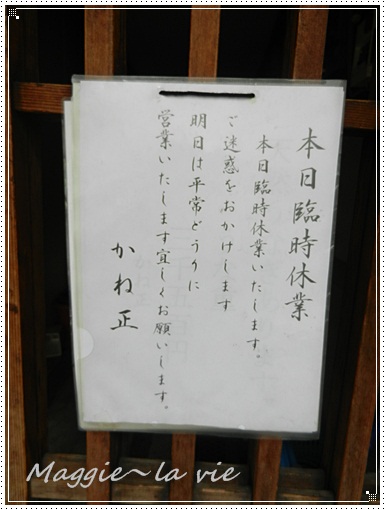 本日臨時休業
本日臨時休業いたします。
ご迷惑をおかけします
明日は平常どうりに
営業いたします宜しくお願いします。
かね正
Maggie~la vie